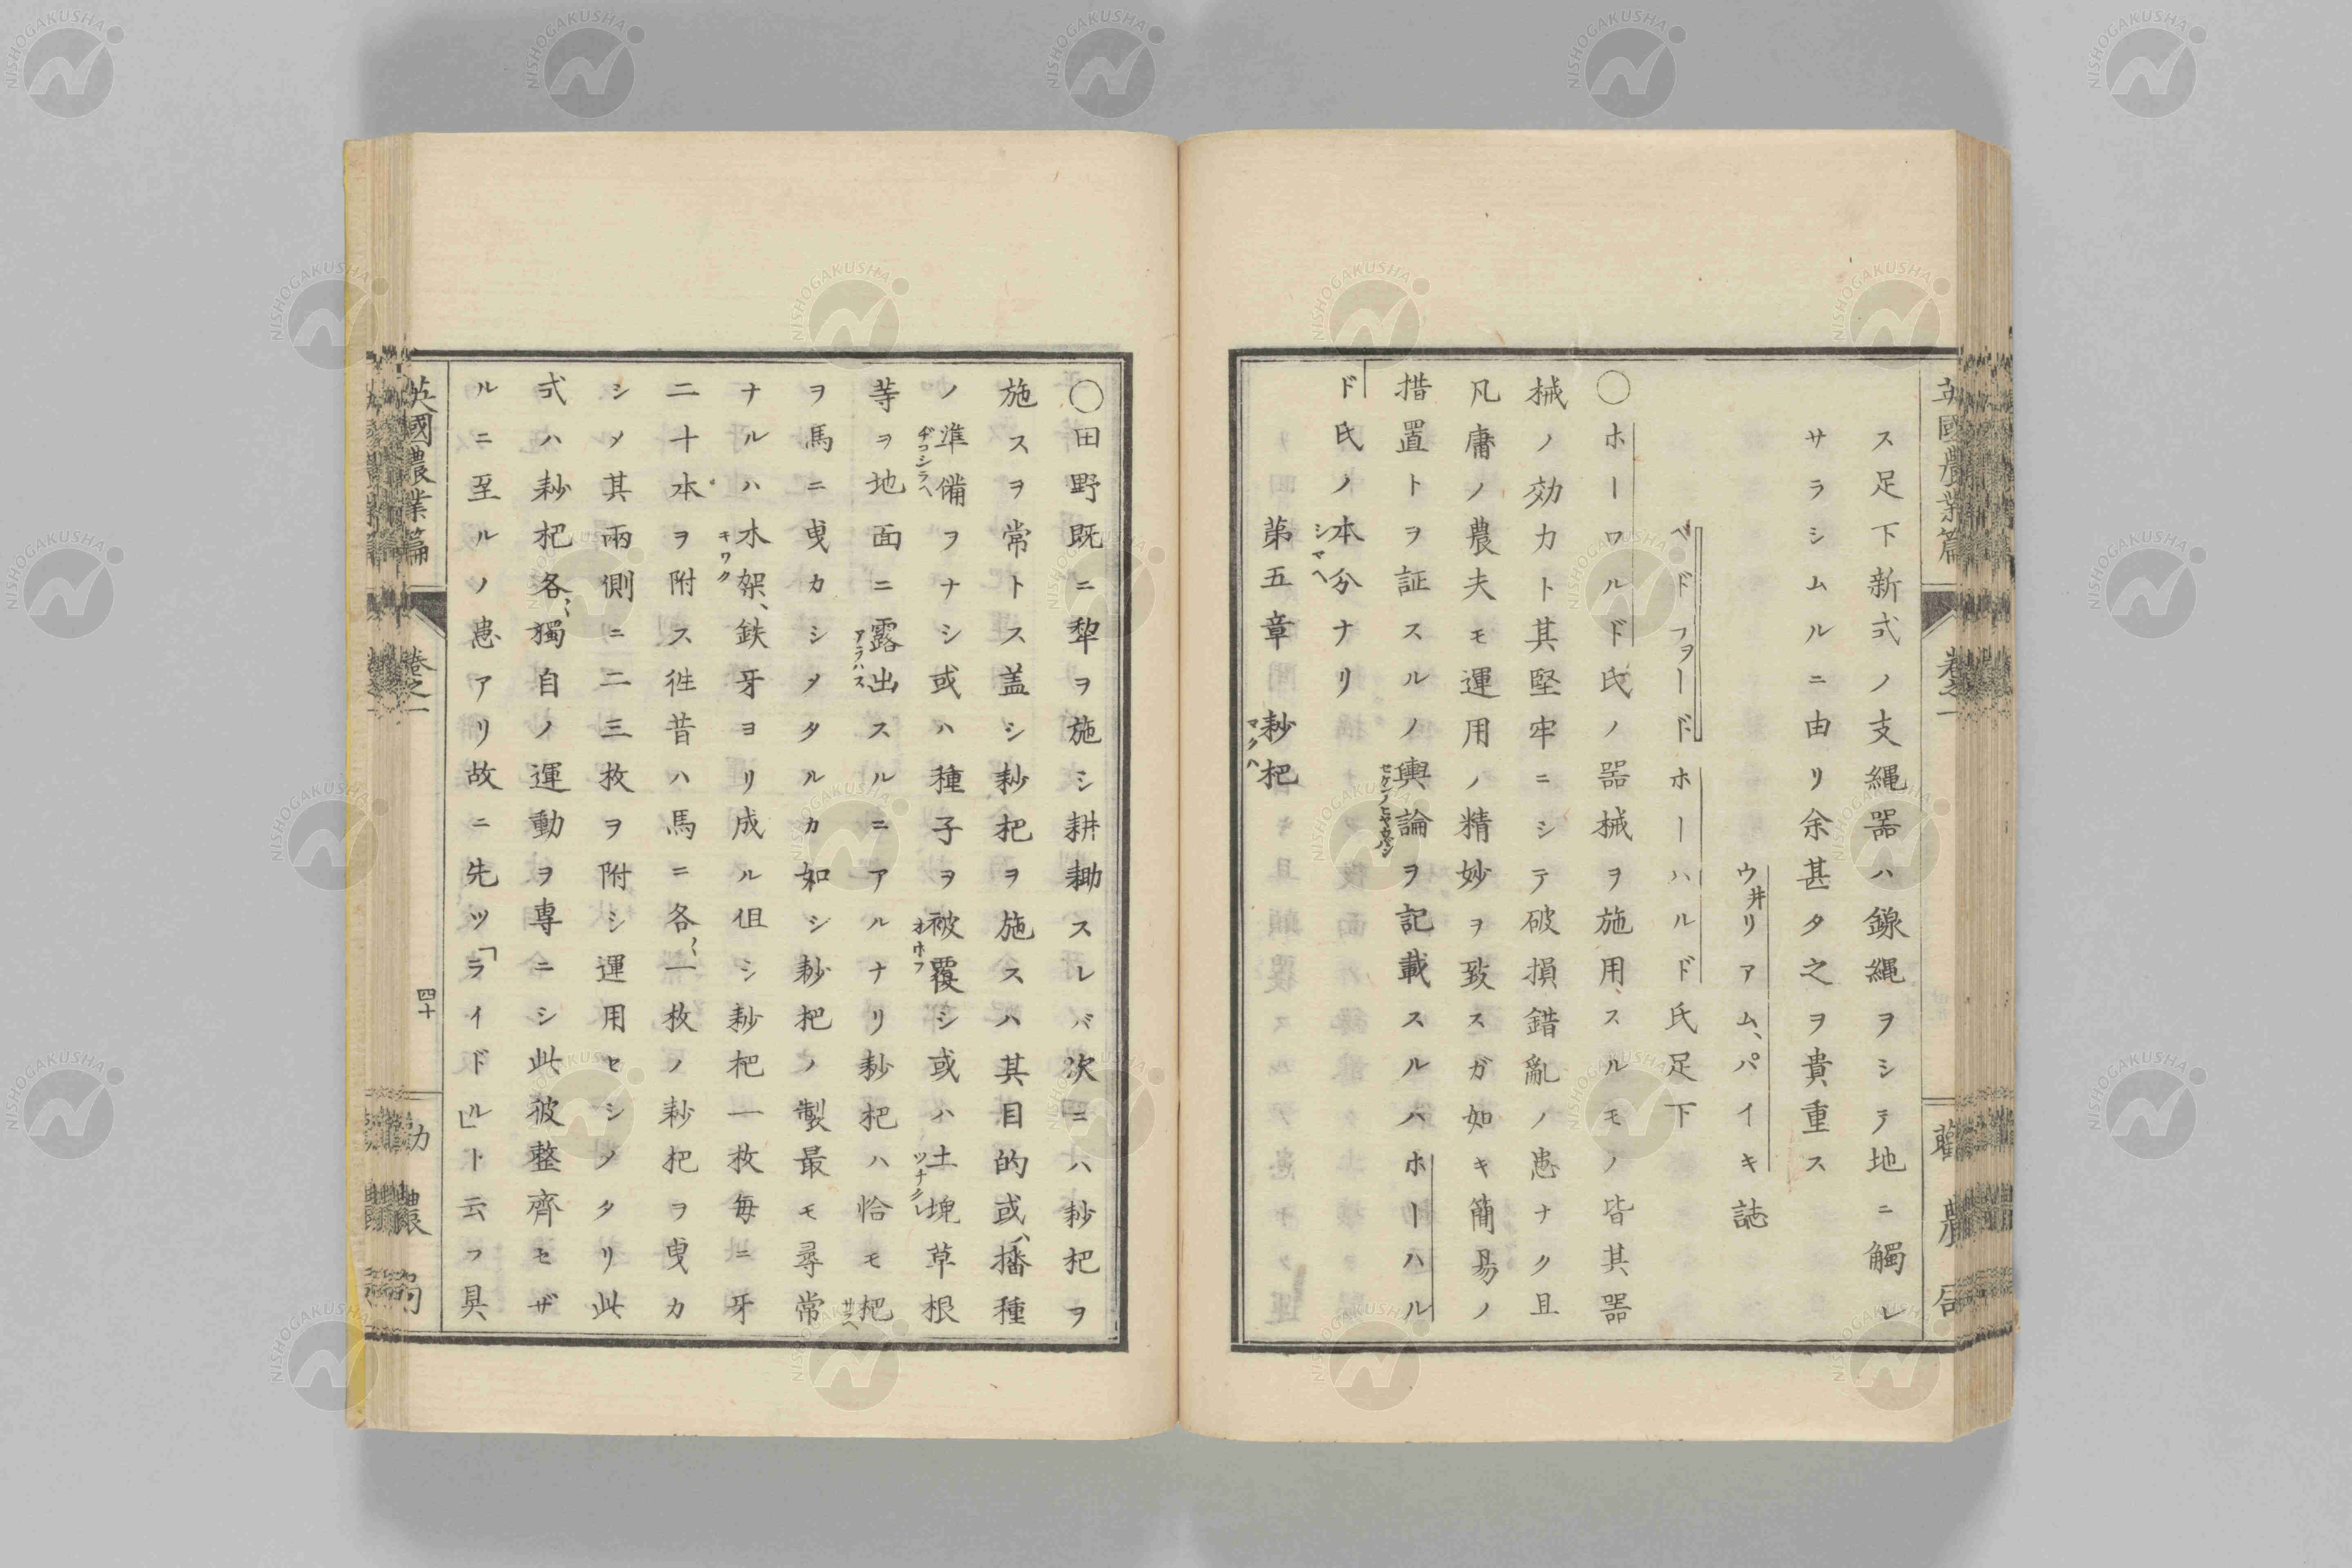 ス足下新式ノ支縄噐ハ鐌縄ヲシテ地ニ觸レ
サラシムルニ由リ余甚タ之ヲ貴重ス
ウ井リアム、パイキ誌
ベドフヲードホーハルド氏足下
○ホーワルド氏ノ噐械ヲ施用スルモノ皆其噐
械ノ効力ト其堅牢ニシテ破損錯亂ノ患ナク且
凡庸ノ農夫モ運用ノ精妙ヲ致スガ如キ簡昜ノ
措置トヲ証スルノ輿論ヲ記載スルハホーハル
ド氏ノ本分ナリ
シマヘ
第五章 耖杷
マクハ
○田野既ニ犂ヲ施シ耕耡スレバ次ニハ耖杷ヲ
施スヲ常トス盖シ耖杷ヲ施スハ其目的或ハ播種
ノ準備ヲナシ或ハ種子ヲ被覆シ或ハ土塊草根
ヂコシラヘ
オホフ
等ヲ地面ニ露出スルニアルナリ耖杷ハ恰モ杷
アラハス
サラヘ
ヲ馬ニ曳カシメタルカ如シ耖杷ノ製最モ尋常
ナルハ木架、鉄牙ヨリ成ル伹シ耖杷一枚毎ニ牙
キワク
二十本ヲ附ス徃昔ハ馬ニ各〻一枚ノ耖杷ヲ曳カ
シメ其兩側ニ二三枚ヲ附シ運用セシメタリ此
式ハ耖杷各〻獨自ノ運動ヲ専ニシ此彼整齊セザ
ルニ至ルノ患アリ故ニ先ツ「ライドル」ト云フ具
英國農業篇
卷之一
四十
勸農局
NISHOGAKUSHA